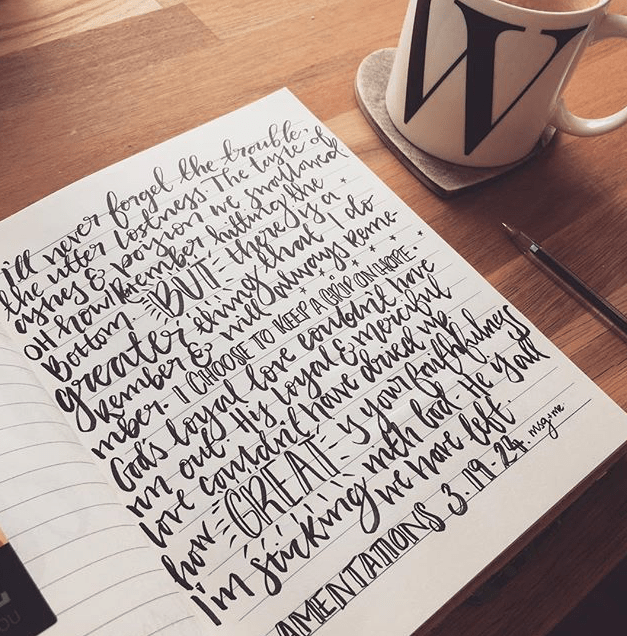 W
I'll never forget the trouble,
the utter lostness. The taste of
ashes & poison we swallowed.
OH how I Remember hitting the
Bottom BUT there is a
greater thing that I do
Remember & will always Reme-
mber. I CHOOSE TO KEEP A GRIP ON HOPE.
God's loyal love couldn't have
run out. His loyal & merciful
love couldn't have dried up
how GREAT is your faithfulness
I'm sticking with God. He Yall
we have left. msg+me.
AMENTATIONS 3.19-24.